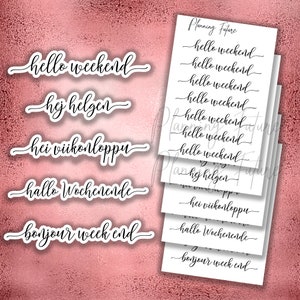 hello weekend
hej helgen
hei viikonloppu
hallo Wochenende
bonjour week end
Planning Future
hello weekend
hello weekend
hello weekend
hello weekend
hello weekend
hello weekend
hello weekend
hej helgen
hei viikonloppu
hallo Wochenende
bonjour week end
Planning Future